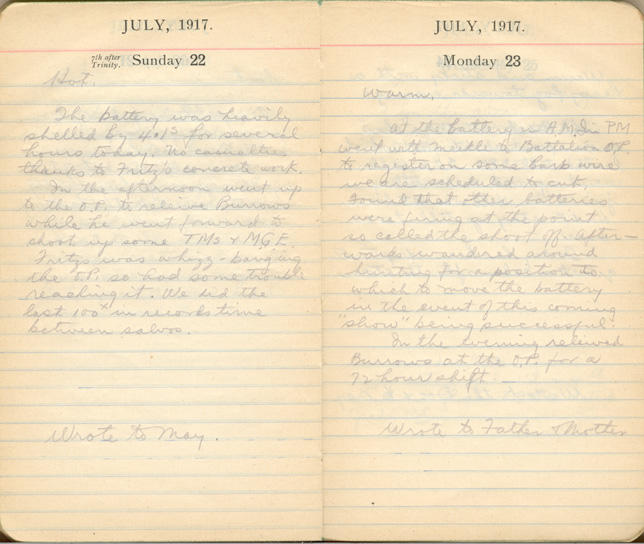 JULY, 1917.
7th after Trinity. Sunday 22
Hot.
The battery was heavily
shelled by 4.1s for several
hours today. No casualties
thanks to Fritz's concrete work.
In the afternoon went up
to the O.P. to relieve Burrows
while he went forward to
shoot up some TMs & MGE.
Fritz was whizz-banging
the O.P. so had some trouble
reaching it. We did the
last 100x in record time
between salvos.
Wrote to May.
JULY, 1917.
Monday 23
Warm.
At the battery in A.M. In PM
went with Meikle to Battalion O.P.
to register on some barb wire
we are scheduled to cut,
found that other batteries
were firing at the point
so called the shoot off. After-
wards wandered around
hunting for a position to
which to move the battery
in the event of this coming
"show" being successful.
In the evening relieved
Burrows at the O.P. for a
72 hour shift.
Wrote to Father & Mother